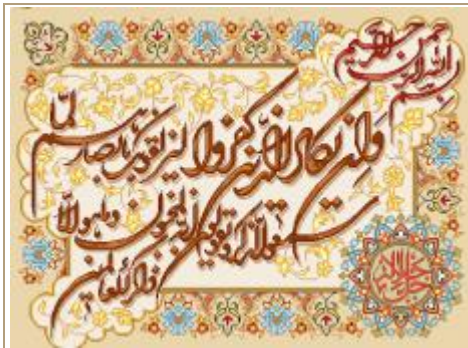 بسم الله الرحمن الرحیم
وَاِن یکاد الذّین کفروا لیزلقونک بابصارهم لمّا
سمعوا الذّکر و یقولون انه لمجنون و ما هو الّا
ذکر للعالمین
جل جلاله